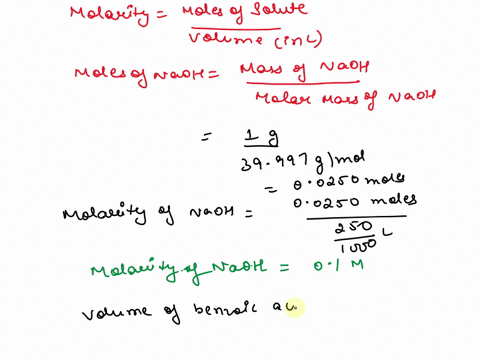 Molarity = Moles of Solute
Volume (in L)
Moles of NaOH = Mass of NaOH
Molar Mass of NaOH
= 1 g
39.997 g/mol
= 0.0250 moles
Molarity of NaOH = 0.0250 moles
250
1000 L
Molarity of NaOH = 0.1 M
Volume of benzoic ac